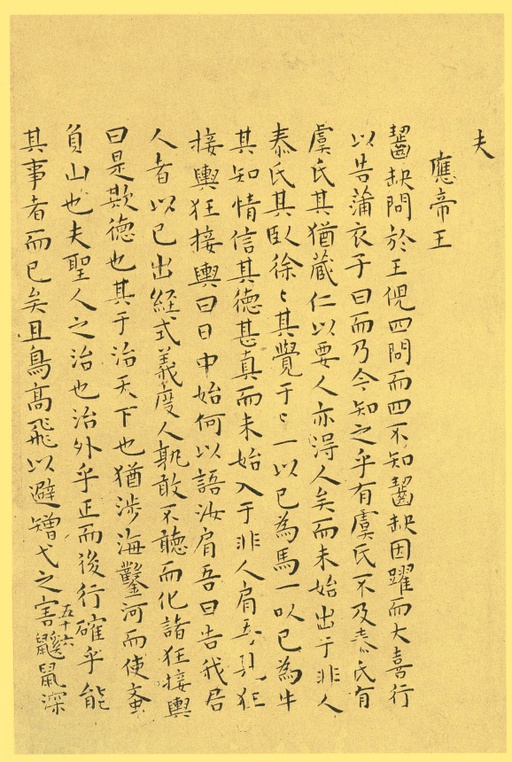 夫
應帝王
齧缺問於王倪四問而四不知齧缺因躍而大喜行
以告蒲衣子曰而乃今知之乎有虞氏不及泰氏有
虞氏其猶藏仁以要人亦得人矣而未始出于非人
泰氏其臥徐〻其覺于〻一以已為馬一以已為牛
其知情信其德甚真而未始入于非人肩吾見狂
接輿狂接輿曰日中始何以語汝肩吾曰告我君
人者以已出經式義度人孰敢不聽而化諸狂接輿
曰是欺德也其于治天下也猶涉海鑿河而使蚉
負山也夫聖人之治也治外乎正而後行確乎能
五十六
其事者而已矣且鳥高飛以避矰弋之害鼷鼠深